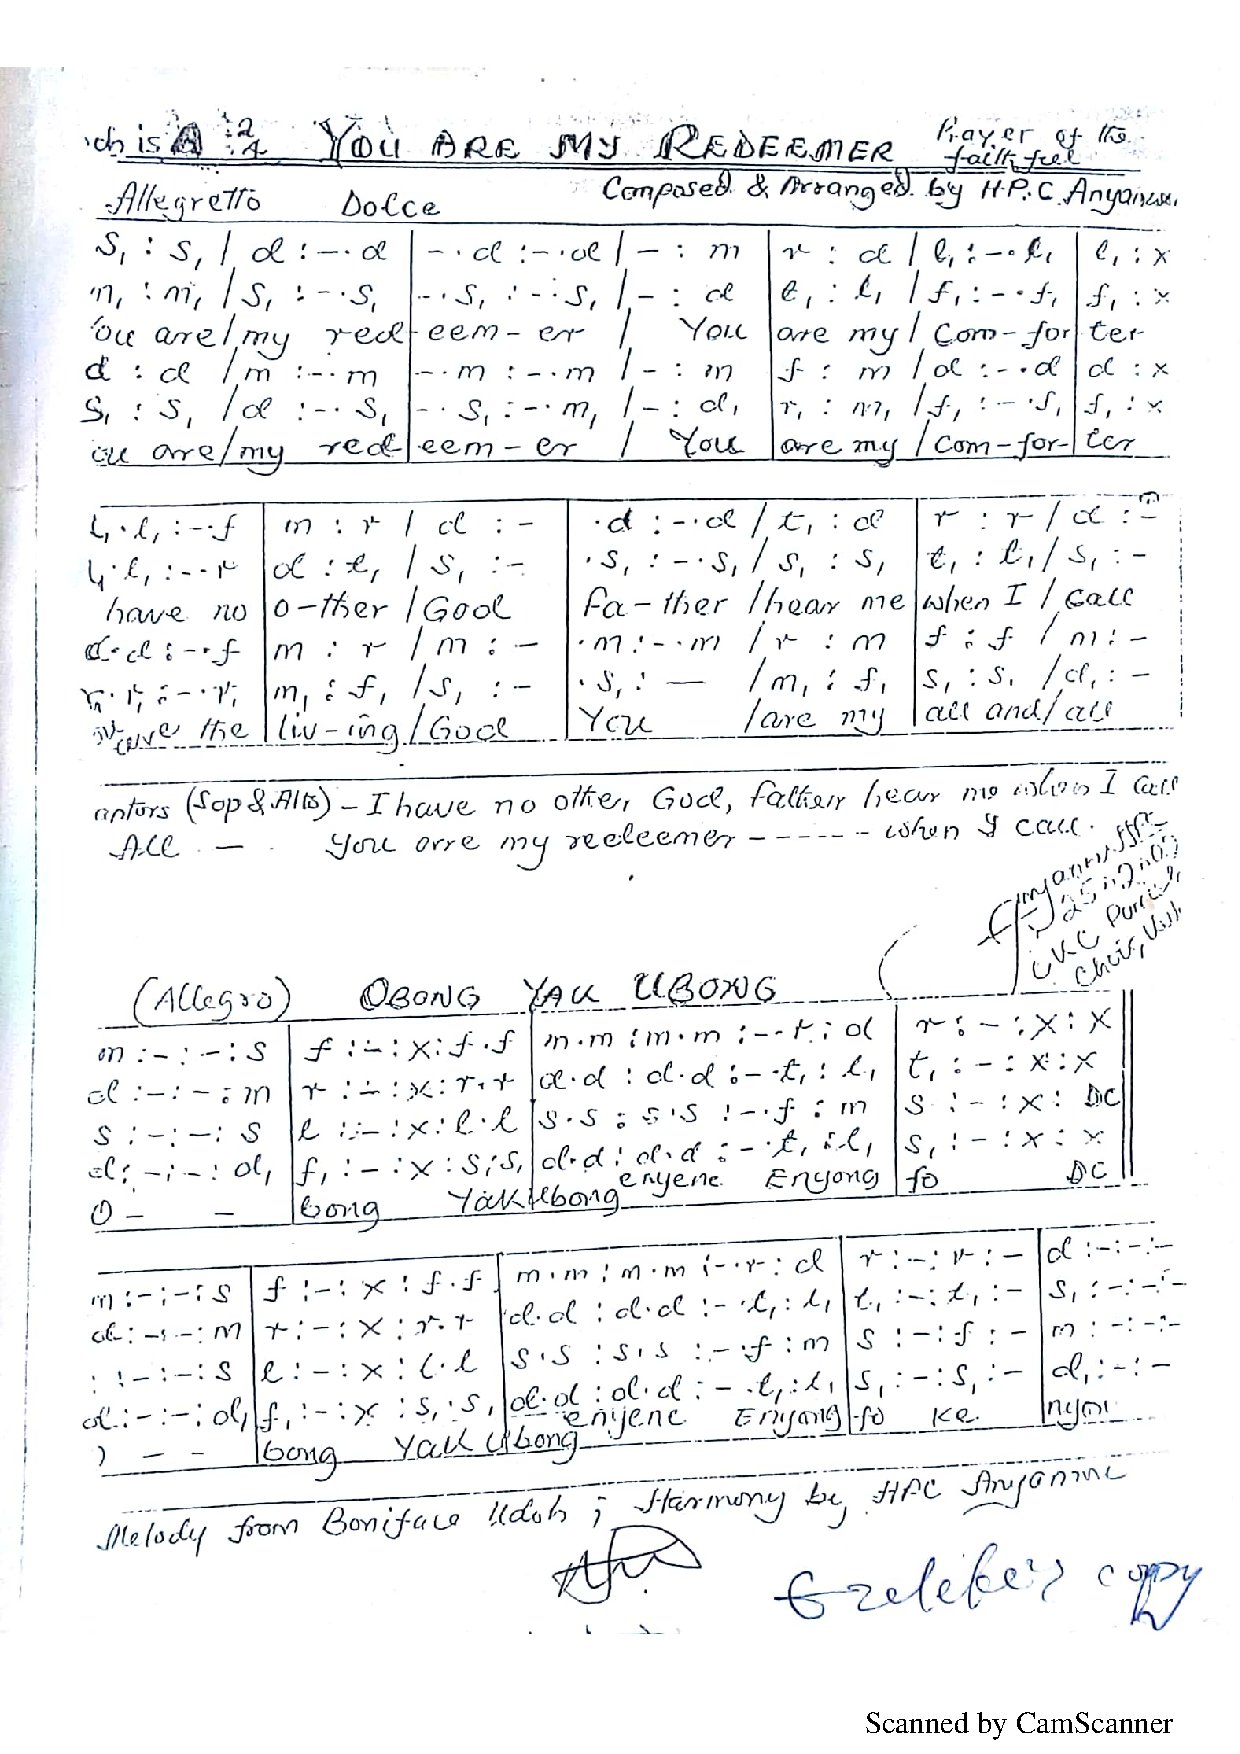 ch is A 2/4 YOU ARE MY REDEEMER Prayer of the faithful
Allegretto Dolce Composed & Arranged by H.P.C. Anyanwu
s₁ : s₁ / d : -. d | -. d : -. d / - : m | r : d / l₁ : -. l₁ | l₁ : x
m₁ : m₁ / s₁ : -. s₁ | -. s₁ : -. s₁ / - : d | t₁ : l₁ / f₁ : -. f₁ | f₁ : x
ou are / my red- | eem - er / You | are my / Com - for | ter
d : d / m : -. m | -. m : -. m / - : m | f : m / d : -. d | d : x
s₁ : s₁ / d : -. s₁ | -. s₁ : -. m₁ / - : d₁ | r₁ : m₁ / f₁ : -. f₁ | f₁ : x
ou are / my red- | eem - er / You | are my / Com - for- | ter
l₁. l₁ : -. f | m : r / d : - | . d : -. d / t₁ : d | r : r / d : -
l₁. l₁ : -. r | d : t₁ / s₁ : - | . s₁ : -. s₁ / s₁ : s₁ | t₁ : l₁ / s₁ : -
have no | o - ther / God | Fa - ther / hear me | when I / Call
d. d : -. f | m : r / m : - | . m : -. m / r : m | f : f / m : -
r₁. r₁ : -. r₁ | m₁ : f₁ / s₁ : - | . s₁ : - / m₁ : f₁ | s₁ : s₁ / d₁ : -
the | liv - ing / God | You / are my | all and / all
antors (Sop & Alto) - I have no other God, Father hear me when I call
All - You are my redeemer ------ when I call.
25
CKC
Choir,
(Allegro) OBONG YAK UBONG
m : - : - : s | f : - : x : f. f | m. m : m. m : -. t : d | r : - : x : x
d : - : - : m | r : - : x : r. r | d. d : d. d : -. t₁ : l₁ | t₁ : - : x : x
s : - : - : s | l : - : x : l. l | s. s : s. s : -. f : m | s : - : x : DC
d : - : - : d₁ | f₁ : - : x : s₁. s₁ | d. d : d. d : -. t₁ : l₁ | s₁ : - : x : x
O - - | bong Yak Ubong enyene Enyong | fo DC
m : - : - : s | f : - : x : f. f | m. m : m. m : -. r : d | r : - : r : - | d : - : - : -
d : - : - : m | r : - : x : r. r | d. d : d. d : -. l₁ : l₁ | t₁ : - : t₁ : - | s₁ : - : - : -
: - : - : s | l : - : x : l. l | s. s : s. s : -. f : m | s : - : f : - | m : - : - : -
d : - : - : d₁ | f₁ : - : x : s₁. s₁ | d. d : d. d : -. l₁ : l₁ | s₁ : - : s₁ : - | d₁ : - : -
) - - | bong Yak Ubong enyene Enyong | fo ke | nyon
Melody from Boniface Udoh ; Harmony by HPC Anyanwu
copy
Scanned by CamScanner